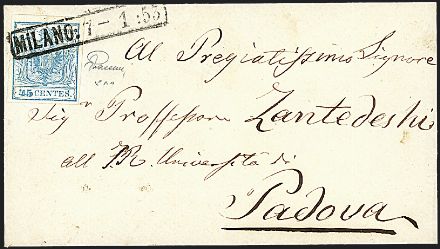 MILANO. 7 – 1 : 55
45 CENTES.
Al Pregiatissimo Signore
Sigr Professore Zantedeshi
all' I.R. Università di
Padova